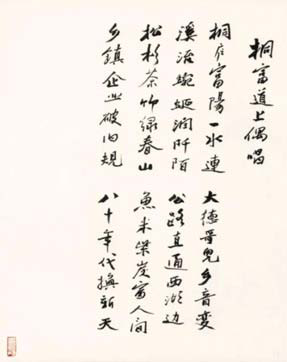 桐富道上偶唱
桐庐富陽一水連
大德哥兒乡音变
溪蜿蜒潤阡陌
公路直通西湖边
松杉茶竹绿春山
魚米柴炭富人间
乡鎮企业破旧規
八十年代換新天